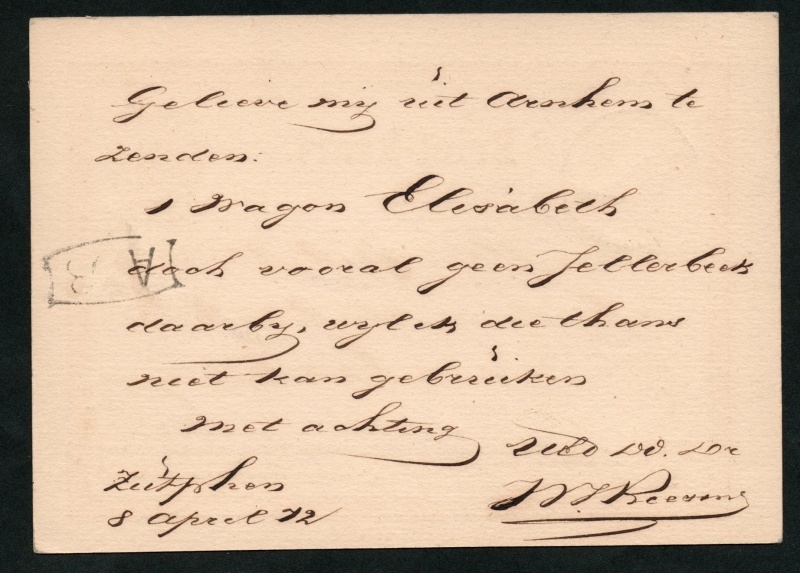 Gelieve mij uit Arnhem te
zenden:
1 Wagon Elisabeth
doch vooral geen Zellerbeek
daarby, wyl ik die thans
niet kan gebruiken
Met achting
UEd Dd. Dr
Zutphen
8 April 72
A